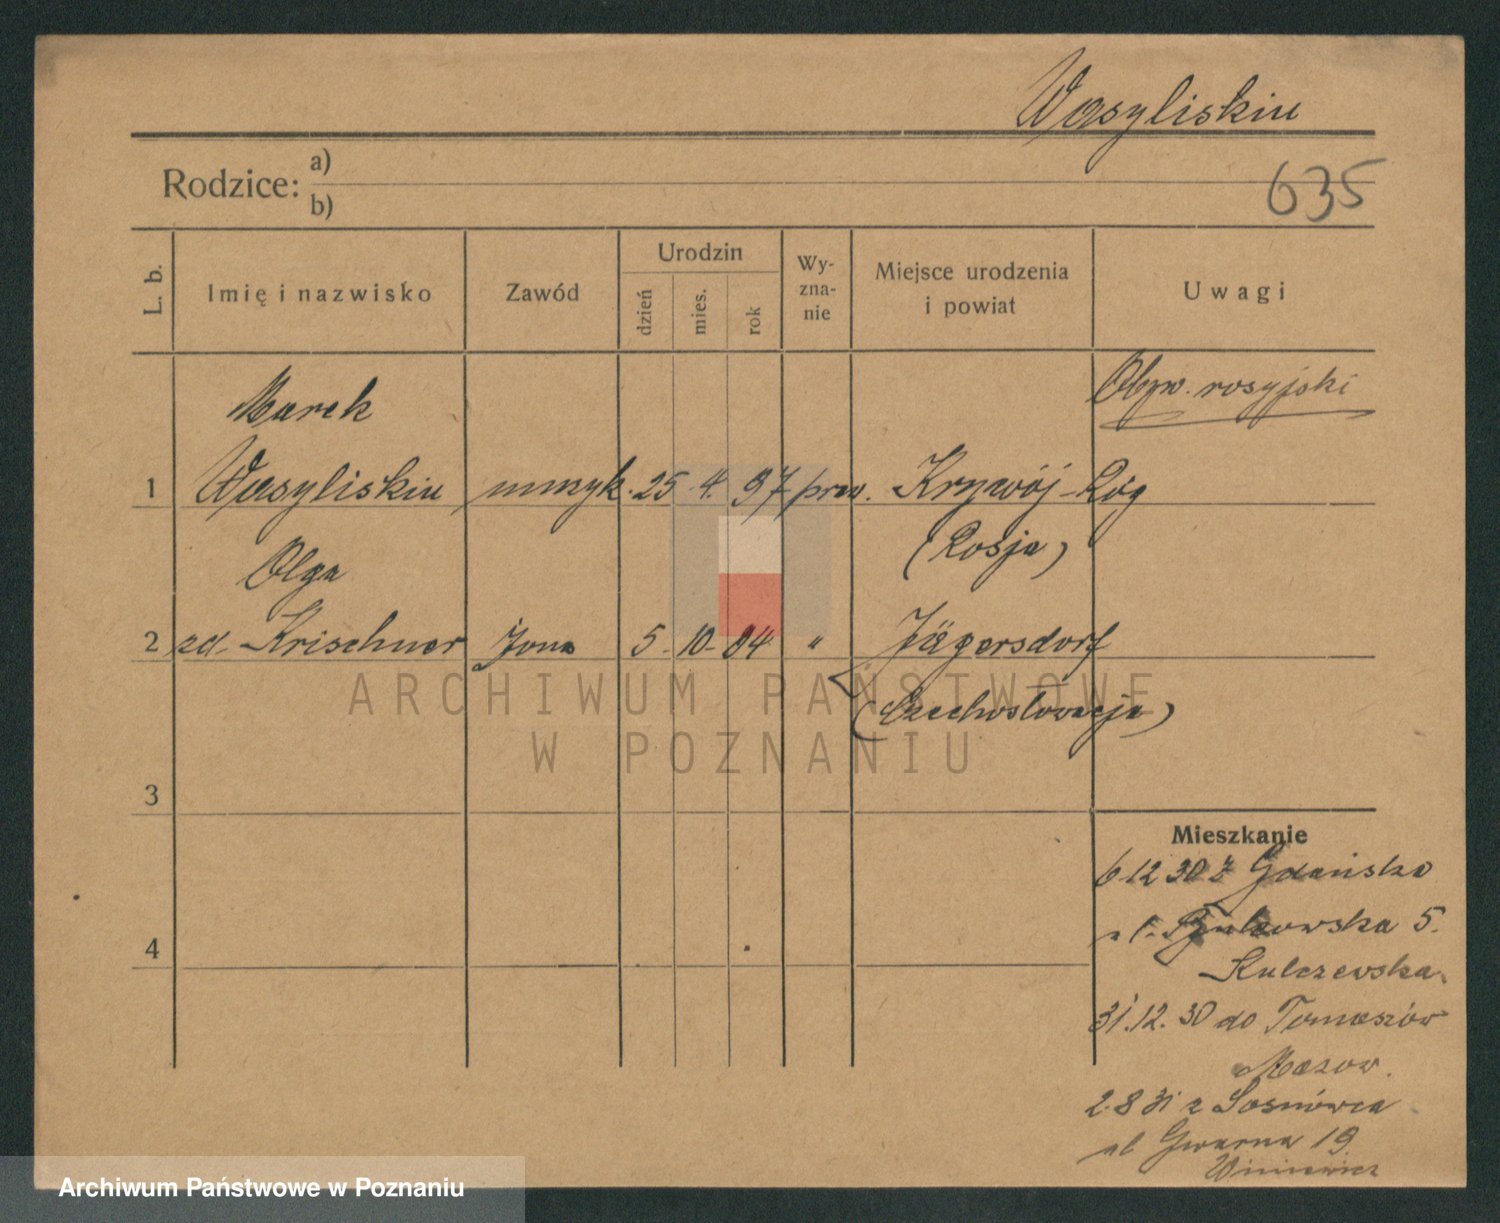 Wasyliskiu
Rodzice: a)
b)
635
L. b.
Imię i nazwisko
Zawód
Urodzin
dzień
mies.
rok
Wy-
zna-
nie
Miejsce urodzenia
i powiat
Uwagi
Obyw. rosyjski
Marek
1 Wasyliskiu muzyk. 25 4. 97 praw. Krzywój-Róg
(Rosja)
Olga
2 zd. Krischner żona 5. 10. 04 " Jägersdorf
(Czechosłowacja)
3
4
Mieszkanie
6 12 30 z Gdańska
ul. 5.
Kulczewska
31.12.30 do Tomaszów
Mazow.
2.8 31 z Sosnówca
ul Gwarna 19
Winiewicz
ARCHIWUM PAŃSTWOWE
W POZNANIU
Archiwum Państwowe w Poznaniu